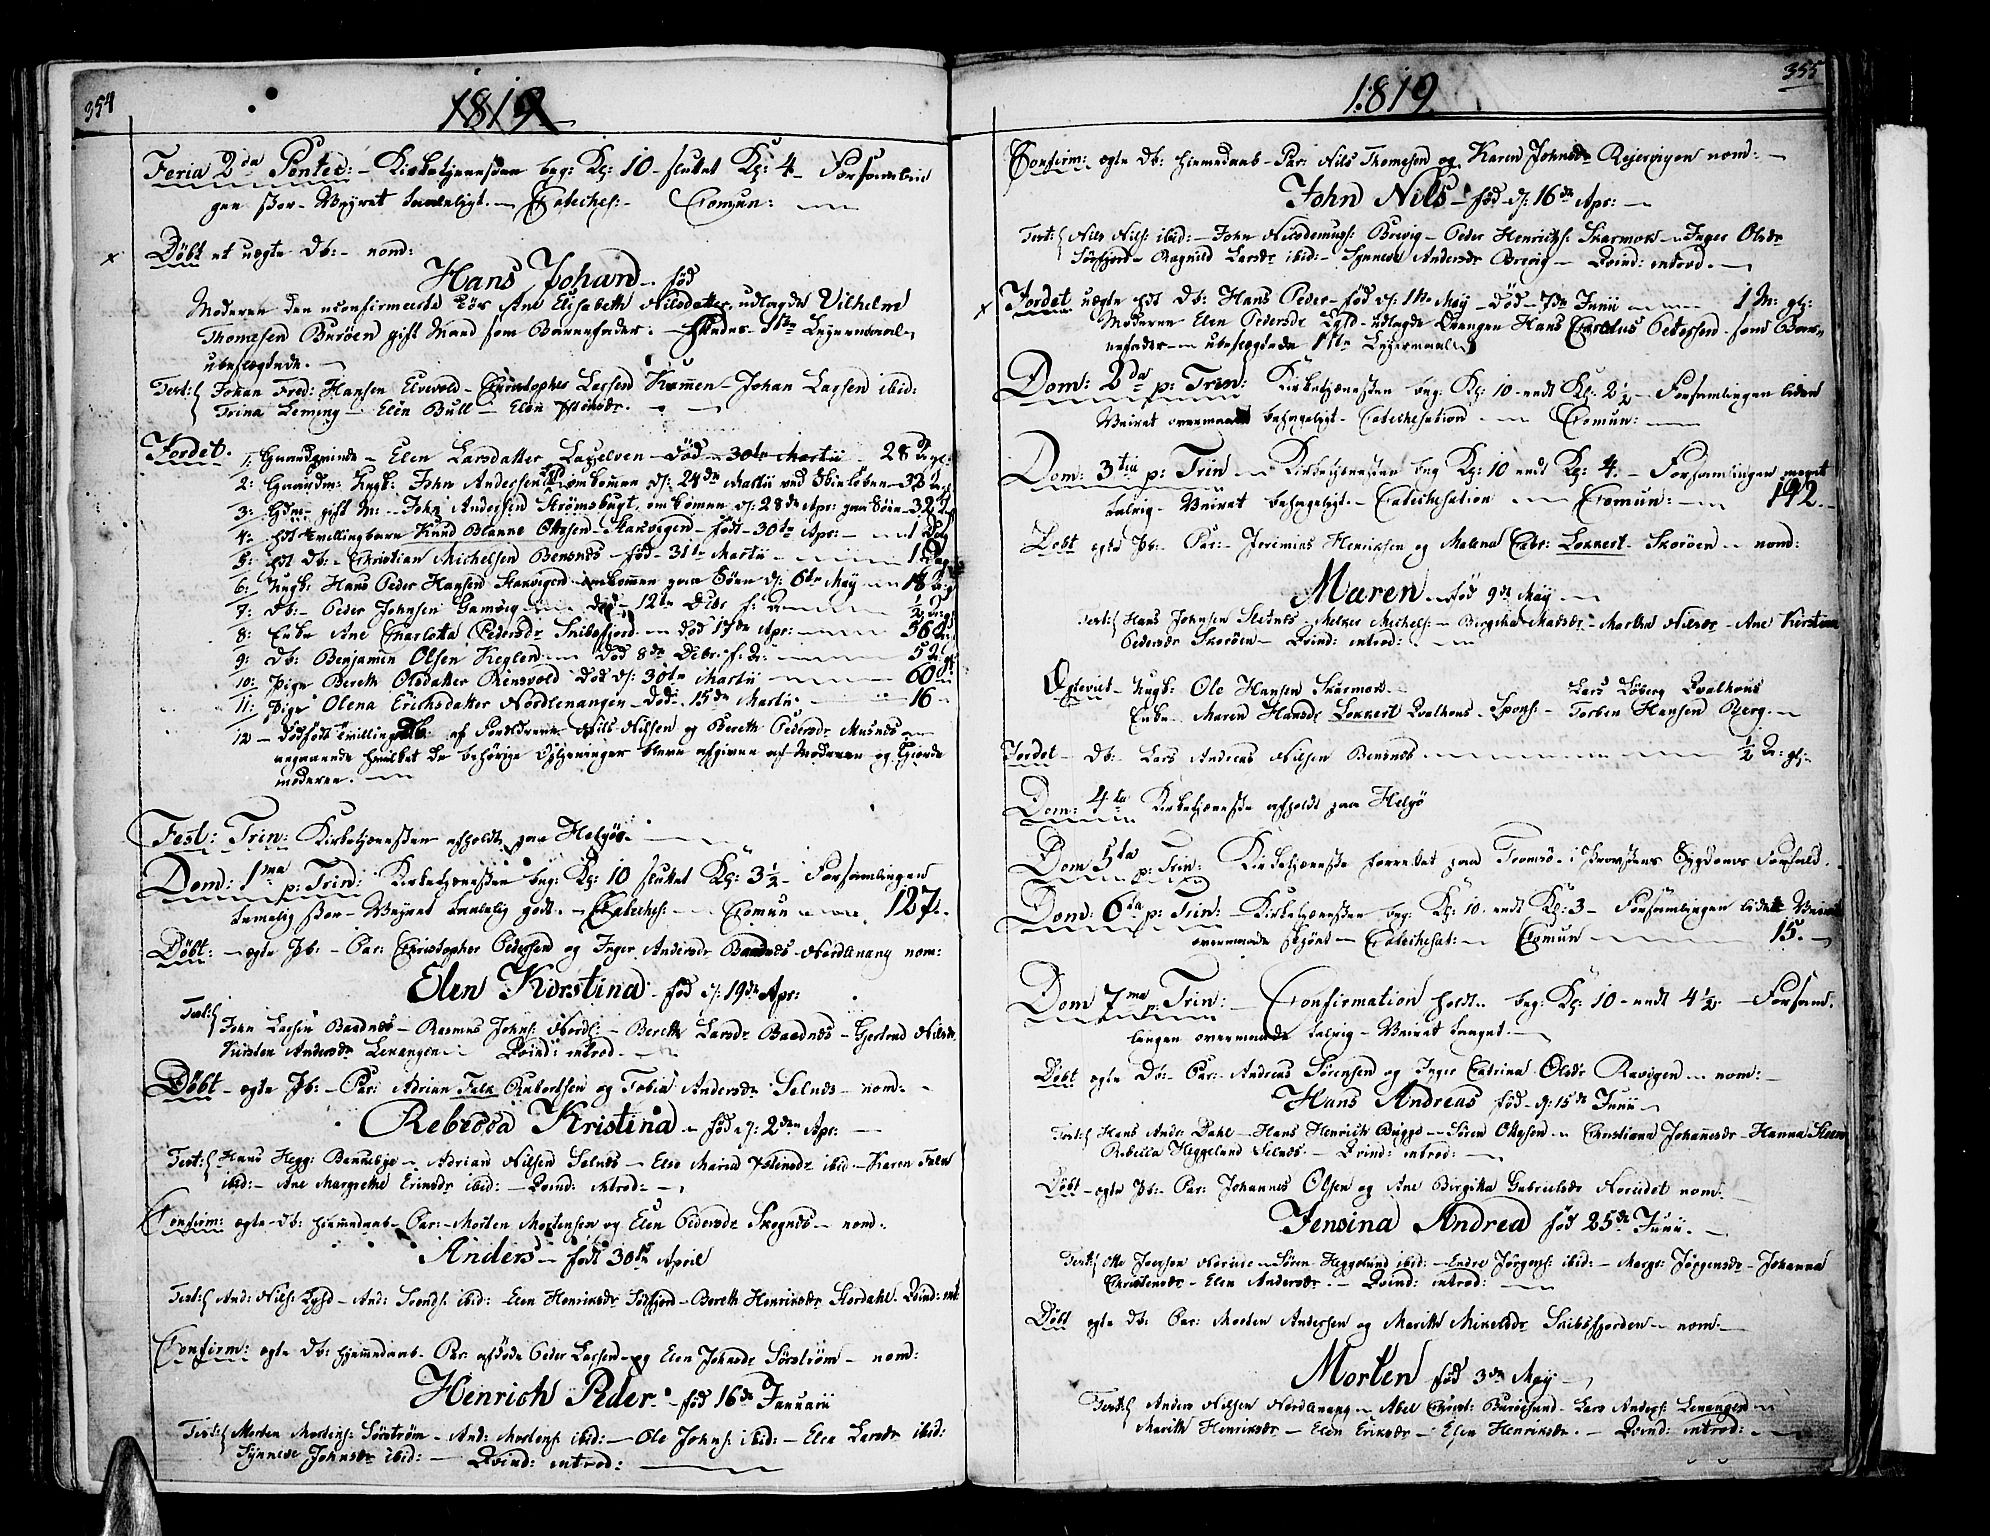 354
1819
Feria 2da Pentec: - Kirketjenesten beg: Kl: 10 - sluttet Kl: 4 - Forsamlin
gen stor - Veyret taaleligt. - Cateches: - Comun:
Döbt et uægte Db: - nom:
Hans Johan - fød
Moderen den uconfirmerede Tös Ane Elisabeth Nilsdatter, udlagde Vilhelm
Thomesen Buröen gift Mand som Barnefader. - Leyermaal
ubesvogrede. -
Test: Johan Fred: Hansen Elvevold - Christopher Larsen Kammen - Johan Larsen ibid:
Trina Leming - Elen Bull - Elen
Jordet. 1: Gaardqvinde - Elen Larsdatter Laxelven - Död - 30te Martii - 28
2: Gaardm: Ungk: John Andersen omkommen d: 24de Martii ved - 33
3: Gdm: gift M: - John Andersen Strömsbugt, omkommen d: 28de Apr: paa Söen - 32
4: ægt tvillingbarn Knud Blanne Ottesen Skarvigen - født - 30te Apr: - 1 Dag
5: ægt Db: - Christian Michelsen Bensnes - fød - 31te Martii - 1 Dag
6: Ungk: Hans Peder Hansen Skarvigen omkommen paa Söen d: 6te May - 18
7: Db: - Peder Johnsen Gamvig - död - 12te Decbr f: A - 1/2
8: Enke Ane Charlotta Pedersdr Snibsfjord - död 17de Apr: - 56
9: Db: Benjamin Olsen Keglen - död 8de Decbr. f. A: - 52
10: Pige Bereth Olsdatter Rensvold död d: 30te Martii - 60
11: Pige Olena Erichsdatter Nordlenangen - död: 15de Martii - 16
12 - dødfødt tvilling Db: af Forældrene Nils Nilsen og Bereth Pedersdr Musnes
angaaende hvilket de behörige Oplysninger bleve afgivne af Moderen og Gjorde
moderen. -
Fest: Trin: Kirketjenesten afholdt paa Helgöe.
Dom: 1ma p: Trin: Kirketjenesten beg: Kl: 10 sluttet Kl: 3 1/2 - Forsamlingen
temelig stor - Veyret taalelig godt. - Cateches: - Comun 127.
Döbt: - ægte Pb: - Par: Christopher Pedersen og Inger Andersdr Baadnes - Nordlenang nom:
Elen Kirstina - fød d: 19de Apr:
Test: John Larsen Baadnes - Rasmus Johns: Nordl: - Bereth Larsdr Baadnes - Gjertrud Nilsdr
Kirsten Andersdr Lenangen Qvind: introd. -
Döbt - ægte Pb: - Par: Adrian Falk Rubertsen og Tobia Andersdr Selnes - nom: -
Rebecca Kristina - fød d: 2den Apr: -
Test: Hans Hegg: Bannebye - Adrian Nilsen Selnes - Else Maria ibid: - Karen Falk
ibid: - Ane Margrethe ibid: - Qvind: introd: -
Confirm: ægte Db: hjemmedaab - Par: - Morten Mortensen og Elen Pedersdr Skognes - nom:
Anders - født 30te April
Test: And: Nils: Lyfd - And: Svends: ibid: - Elen Henriksdr Sörfjord - Bereth Henriksdr Stordahl - Qvind: int
Confirm: ægte Db: hjemmedaab - Par: afdöde Peder Larsen og Elen Johnsdr Sörström - nom:
Henrich Peder - fød 16de Januarii
Test: Morten Mortens: Sörström - And: Mortens: ibid: - Ole Johns: ibid: - Elen Larsdr ibid:
Synneve Johnsdr ibid: - Qvind: introd:
355
1819
Confirm: ægte Db: hjemmedaab - Par: Nils Thomesen og Karen Johnsdr Rejervigen nom: -
John Nils - fød d: 16de Apr: -
Test: Nils Nils: ibid: - John Nicodemuss: Brevig - Peder Henrichs: Skarmok - Inger Olsdr
Sörfjord - Ragnild Larsdr ibid: - Synneve Andersdr Brevig - Qvind: introd. -
Jordet uægte Db: Hans Peder - fød d: 11te May - Död - 7de Junii - 1 M: gl:
Moderen Elen Pedersdr Lyfd - udlagde Drengen Hans Carolus Petersen som Bar
nefader - ubesvogrede 1ste Leyermaal
Dom: 2da p: Trin: Kirketjenesten beg: Kl: 10 - endt Kl: 2 1/2 - Forsamlingen liden
Veiret overmaade behageligt - Catechesation - Comun: -
Dom: 3tia p: Trin - Kirketjenesten beg Kl: 10 endt Kl: 4 - Forsamlingen meget
talrig - Veiret behageligt - Catechesation - Comun: - 192.
Döbt ægte Pb: Par: Jeremias Henriksen og Malena Cathr: Lokkert - Skoröen - nom:
Maren - fød 9de May -
Test: Hans Johnsen Sletnes - Melker Michels: - Birgitha Madsdr - Martha Nilsdr - Ane Kirstina
Pedersdr Skoröen - Qvind: introd: -
Egteviet - Ungk: Ole Hansen Skarmok. Lars Löberg Qvalhous
Enke Maren Hansdr Lokkert Qvalhous - Spons: - Torben Hansen Berg. -
Jordet - Db: Lars Andreas Nilsen Bensnes - 1/2 A: gl:
Dom: 4ta Kirketjeneste afholdt paa Helgö
Dom 5ta p: Trin: Kirketjeneste forrettet paa Tromsö - i Provstens Sygdoms Forfald.
Dom: 6ta p: Trin: - Kirketjenesten beg: Kl: 10 - endt Kl: 3 - Forsamlingen liden Veiret
overmaade skjönt - Catechesat: - Comun - 15. -
Dom 7ma p: Trin: - Confirmation holdt - beg: Kl: 10 - endt 4 1/2 - Forsam
lingen overmaade talrig - Veiret -
Döbt ægte Db: Par: Andreas Sörensen og Inger Catrina Olsdr Ravigen - nom: -
Hans Andreas fød - d: 15de Junii -
Test: Hans Ander Dahl - Hans Henrich Brigge - Sören Ottesen - Christiana Johannesdr - Hanna Steen
Rebecca Heggelund Selnes. - Qvind: introd: -
Döbt - ægte Pb: Par: Johannes Olsen og Ane Birgitha Gabrielsdr Noreidet nom:
Jensina Andrea fød 25de Junii. -
Test: Ole Joersen Noreide - Sören Heggelund ibid: - Endre Jörgens: ibid: - Marge: Jörgensdr - Johanna
Christensdr - Elen Andersdr. - Qvind: introd: -
Döbt ægte Db: Par: Morten Andersen og Marith Mikelsdr Snibsfjorden - nom: -
Morten fød 3de May -
Test: Anders Nilsen Nordlenang - Abel Christ: Buröesund - Lars Anders: Lenangen
Marith Henriksdr - Elen Eriksdr - Elen Henriksdr. - Qvind: introd: -